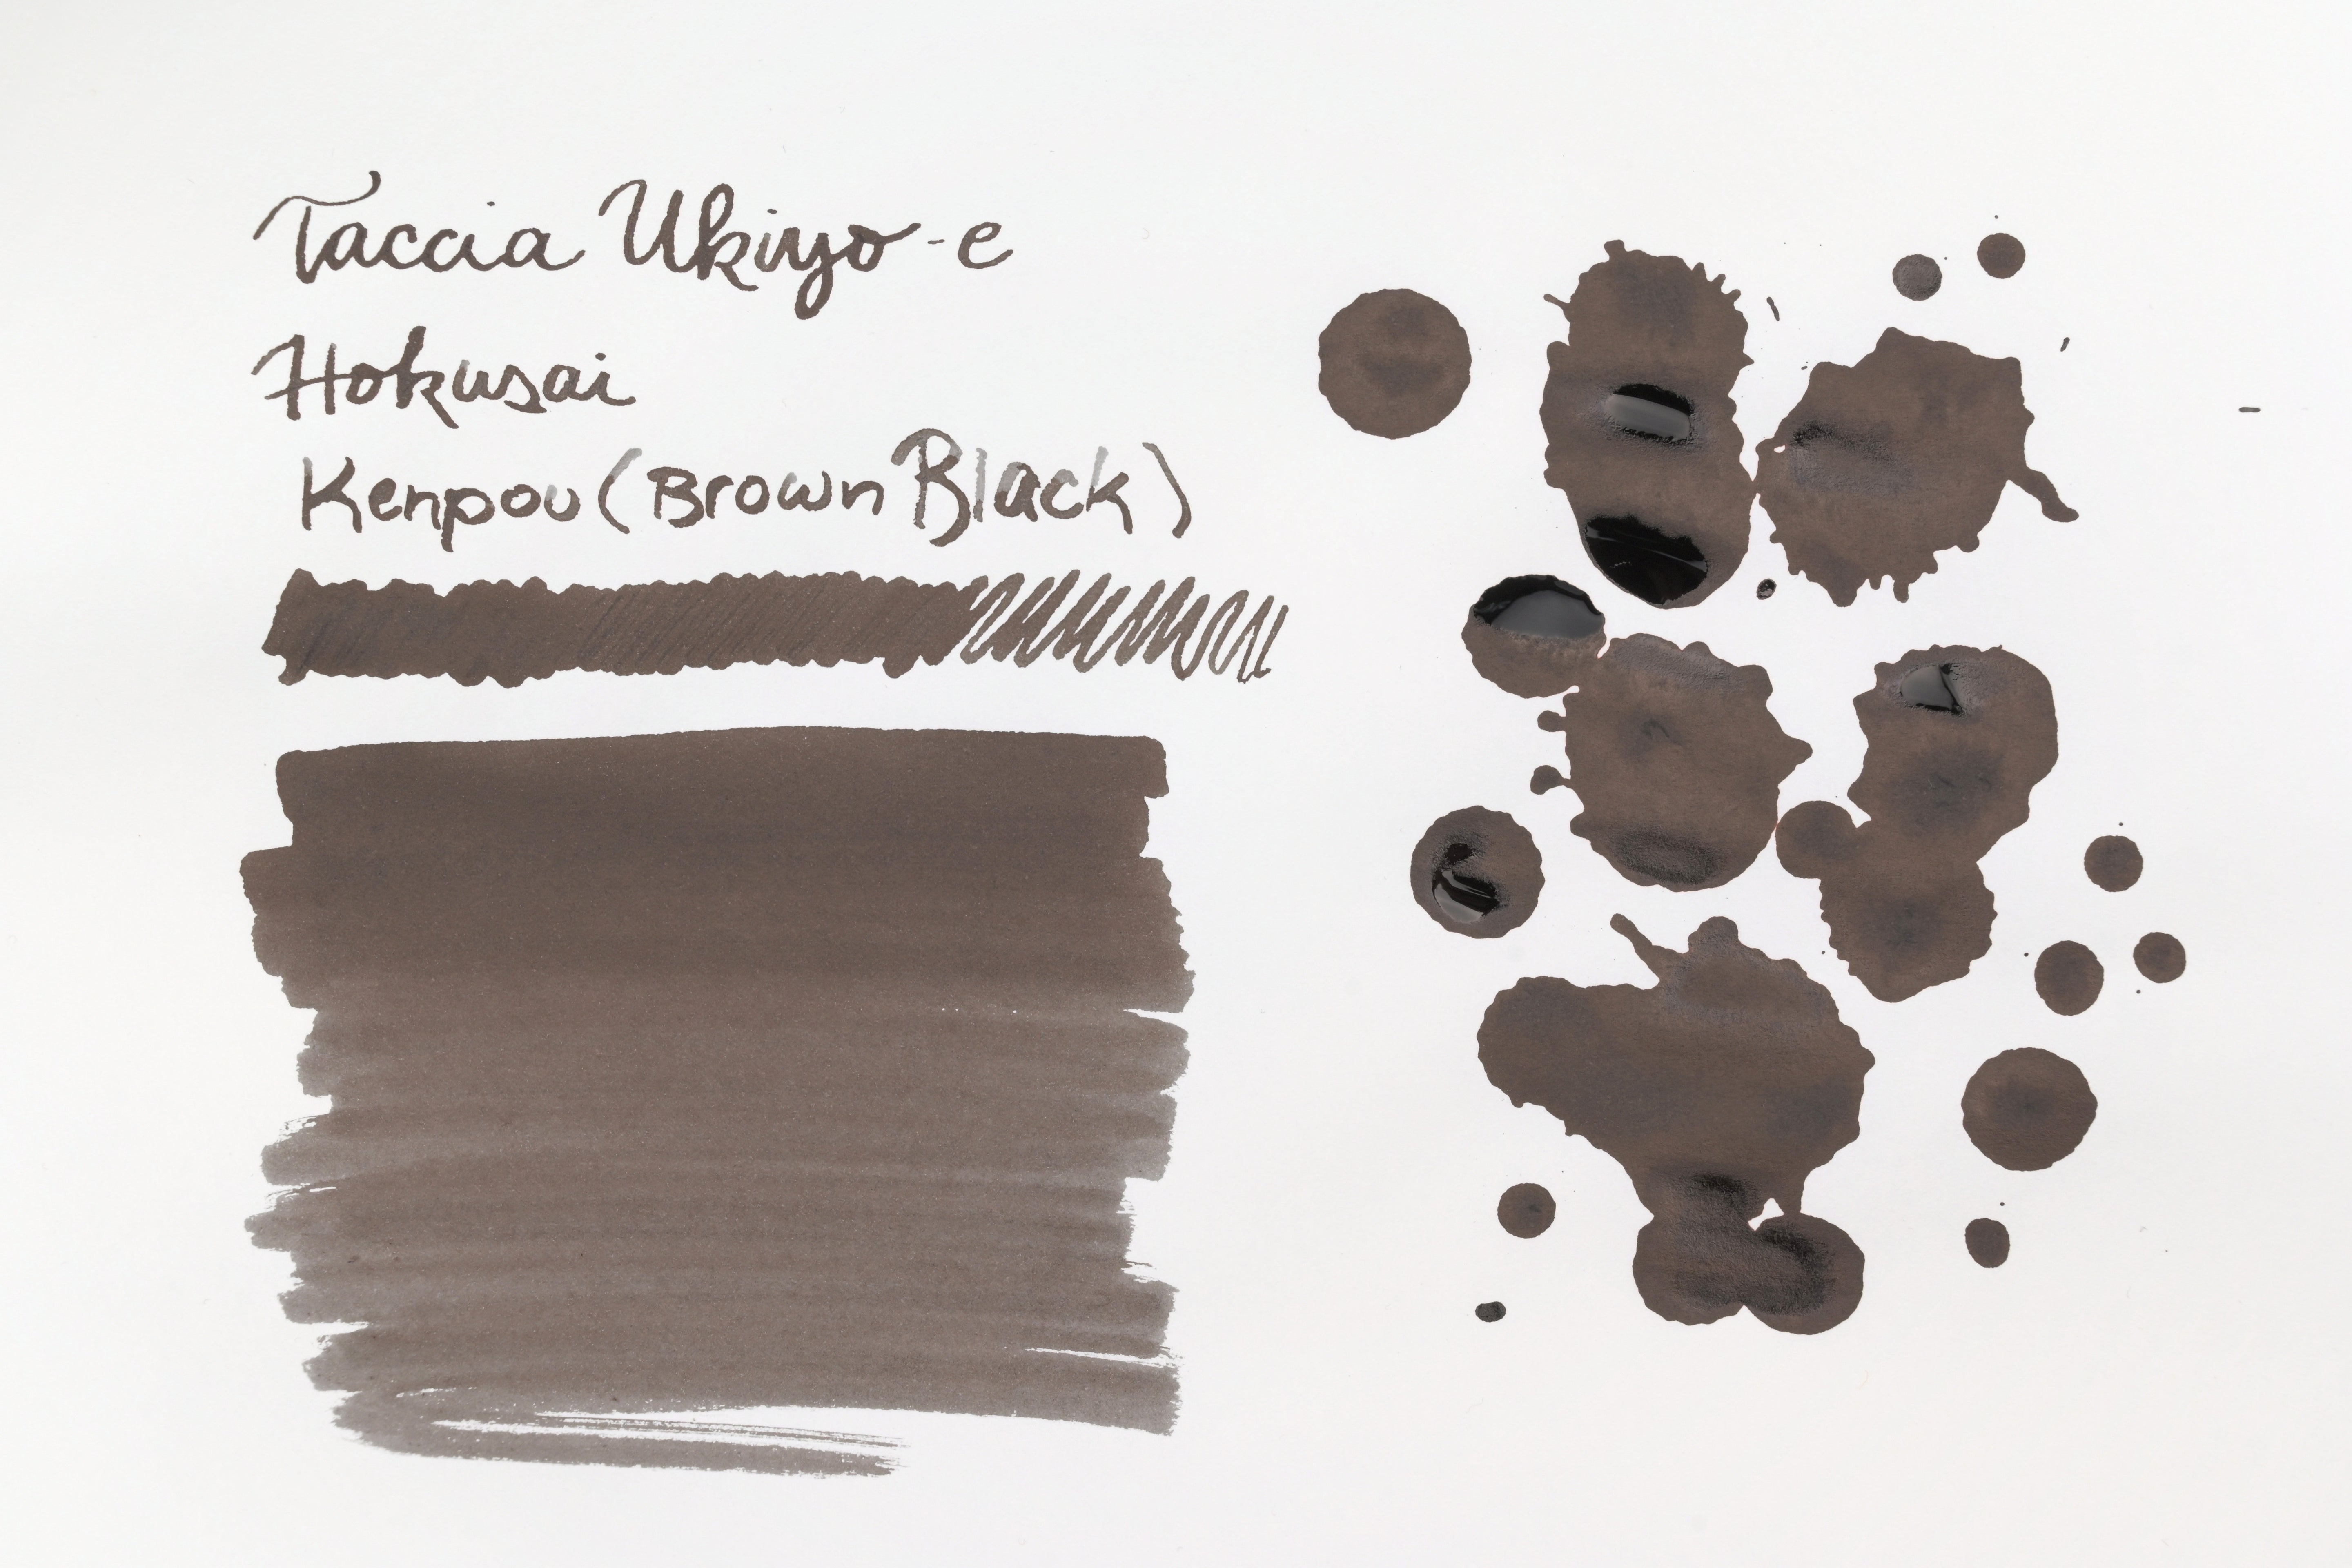 Taccia Ukiyo-e
Hokusai
Kenpou (Brown Black)